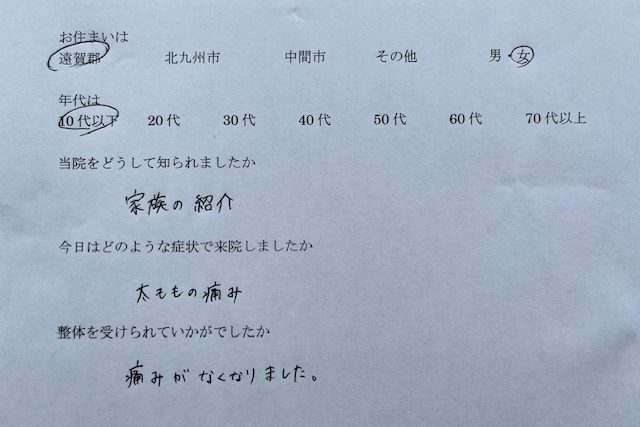 お住まいは
遠賀郡 北九州市 中間市 その他 男・女
年代は
10代以下 20代 30代 40代 50代 60代 70代以上
当院をどうして知られましたか
家族の紹介
今日はどのような症状で来院しましたか
太ももの痛み
整体を受けられていかがでしたか
痛みがなくなりました。